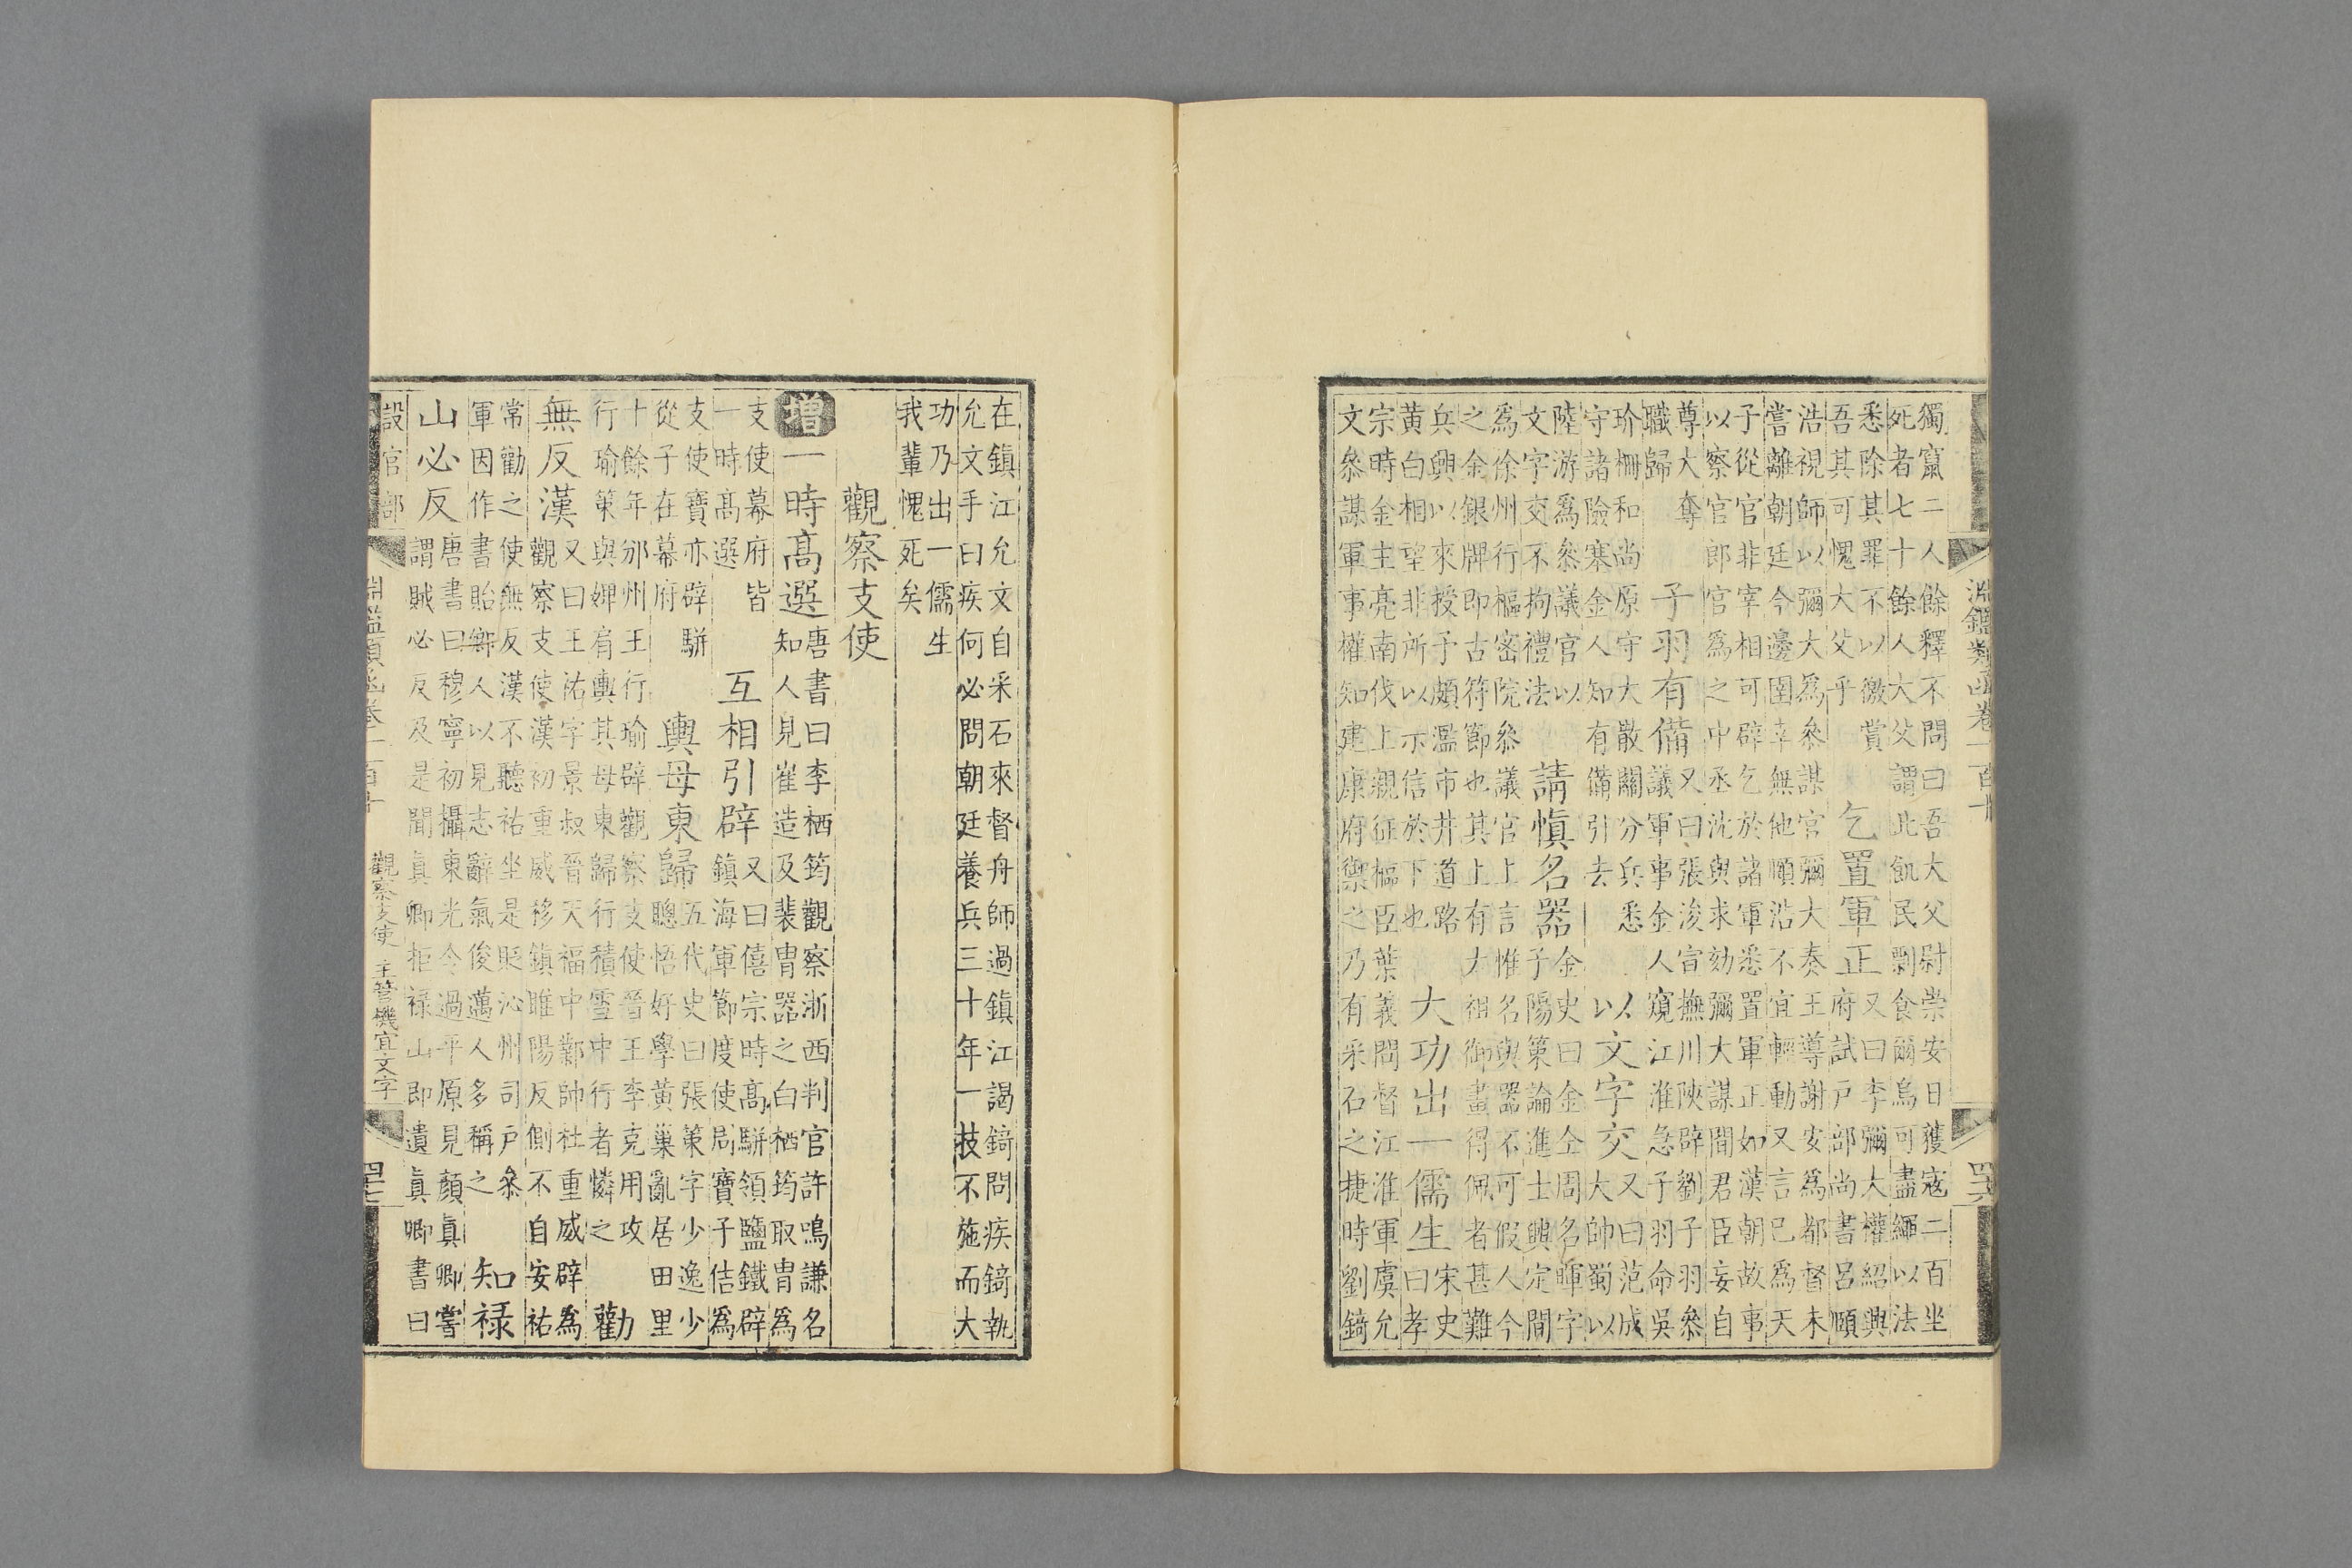 淵鑑類函卷二百十
四十六
獨竄二人餘釋不問曰吾大父尉崇安日獲寇二百坐
死者七十餘人大父謂此飢民剽食爾烏可盡繩以法
悉除其罪不以徼賞
吾其可愧大父乎
乞置軍正
又曰李彌大權紹興
府試戸部尚書呂頤
浩視師以彌大爲叅謀官彌大奏王導謝安爲都督未
嘗離朝廷今邊圉幸無他頤浩不宜輕動又言已爲天
子從官非宰相可辟乞於諸軍悉置軍正如漢朝故事
以察官郎官爲之中丞沈與求劾彌大謀間君臣妄自
尊大奪
職歸
子羽有備
又曰張浚宣撫川陝辟劉子羽叅
議軍事金人窺江淮急子羽命吳
玠柵和尚原守大散關分兵悉
守諸險塞金人知有備引去
以文字交
又曰范成
大帥蜀以
陸游爲叅議官以
文字交不拘禮法
請愼名器
金史曰金仝周名暉字
子陽策論進士興定間
爲徐州行樞密院叅議官上言惟名與器不可假人今
之金銀牌即古符節也其上有太祖御畫得佩者甚難
兵興以來授予頗濫市井道路
黃白相望非所以示信於下也
大功出一儒生
宋史
曰孝
宗時金主亮南伐上親征樞臣葉義問督江淮軍虞允
文叅謀軍事權知建康府禦之乃有采石之捷時劉錡
在鎭江允文自采石來督舟師過鎭江謁錡問疾錡執
允文手曰疾何必問朝廷養兵三十年一技不施而大
功乃出一儒生
我輩愧死矣
觀察支使
增一時高選
唐書曰李栖筠觀察浙西判官許鳴謙名
知人見崔造及裴胄器之白栖筠取胄爲
支使幕府皆
一時高選
互相引辟
又曰僖宗時高駢領鹽鐵辟
鎭海軍節度使局寶子佶爲
支使寶亦辟駢
從子在幕府
輿母東歸
五代史曰張策字少逸少
聰悟好學黃巢亂居田里
十餘年邠州王行瑜辟觀察支使晉王李克用攻
行瑜策與婢肩輿其母東歸行積雪中行者憐之
勸無反漢
又曰王祐字景叔晉天福中鄴帥杜重威辟爲
觀察支使漢初重威移鎭睢陽反側不自安祐
常勸之使無反漢不聽祐坐是貶沁州司戸叅
軍因作書貽鄉人以見志辭氣俊邁人多稱之
知祿山必反
唐書曰穆寧初攝東光令過平原見顏眞卿嘗
謂賊必反及是聞眞卿拒祿山即遺眞卿書曰
設官部
淵鑑類函卷二百十
觀察支使 主管機宜文字
四十七